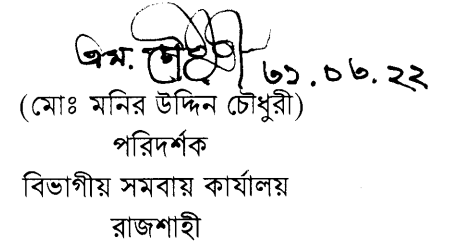 এম. চৌধুরী ৩১.০৩.২২
(মোঃ মনির উদ্দিন চৌধুরী)
পরিদর্শক
বিভাগীয় সমবায় কার্যালয়
রাজশাহী